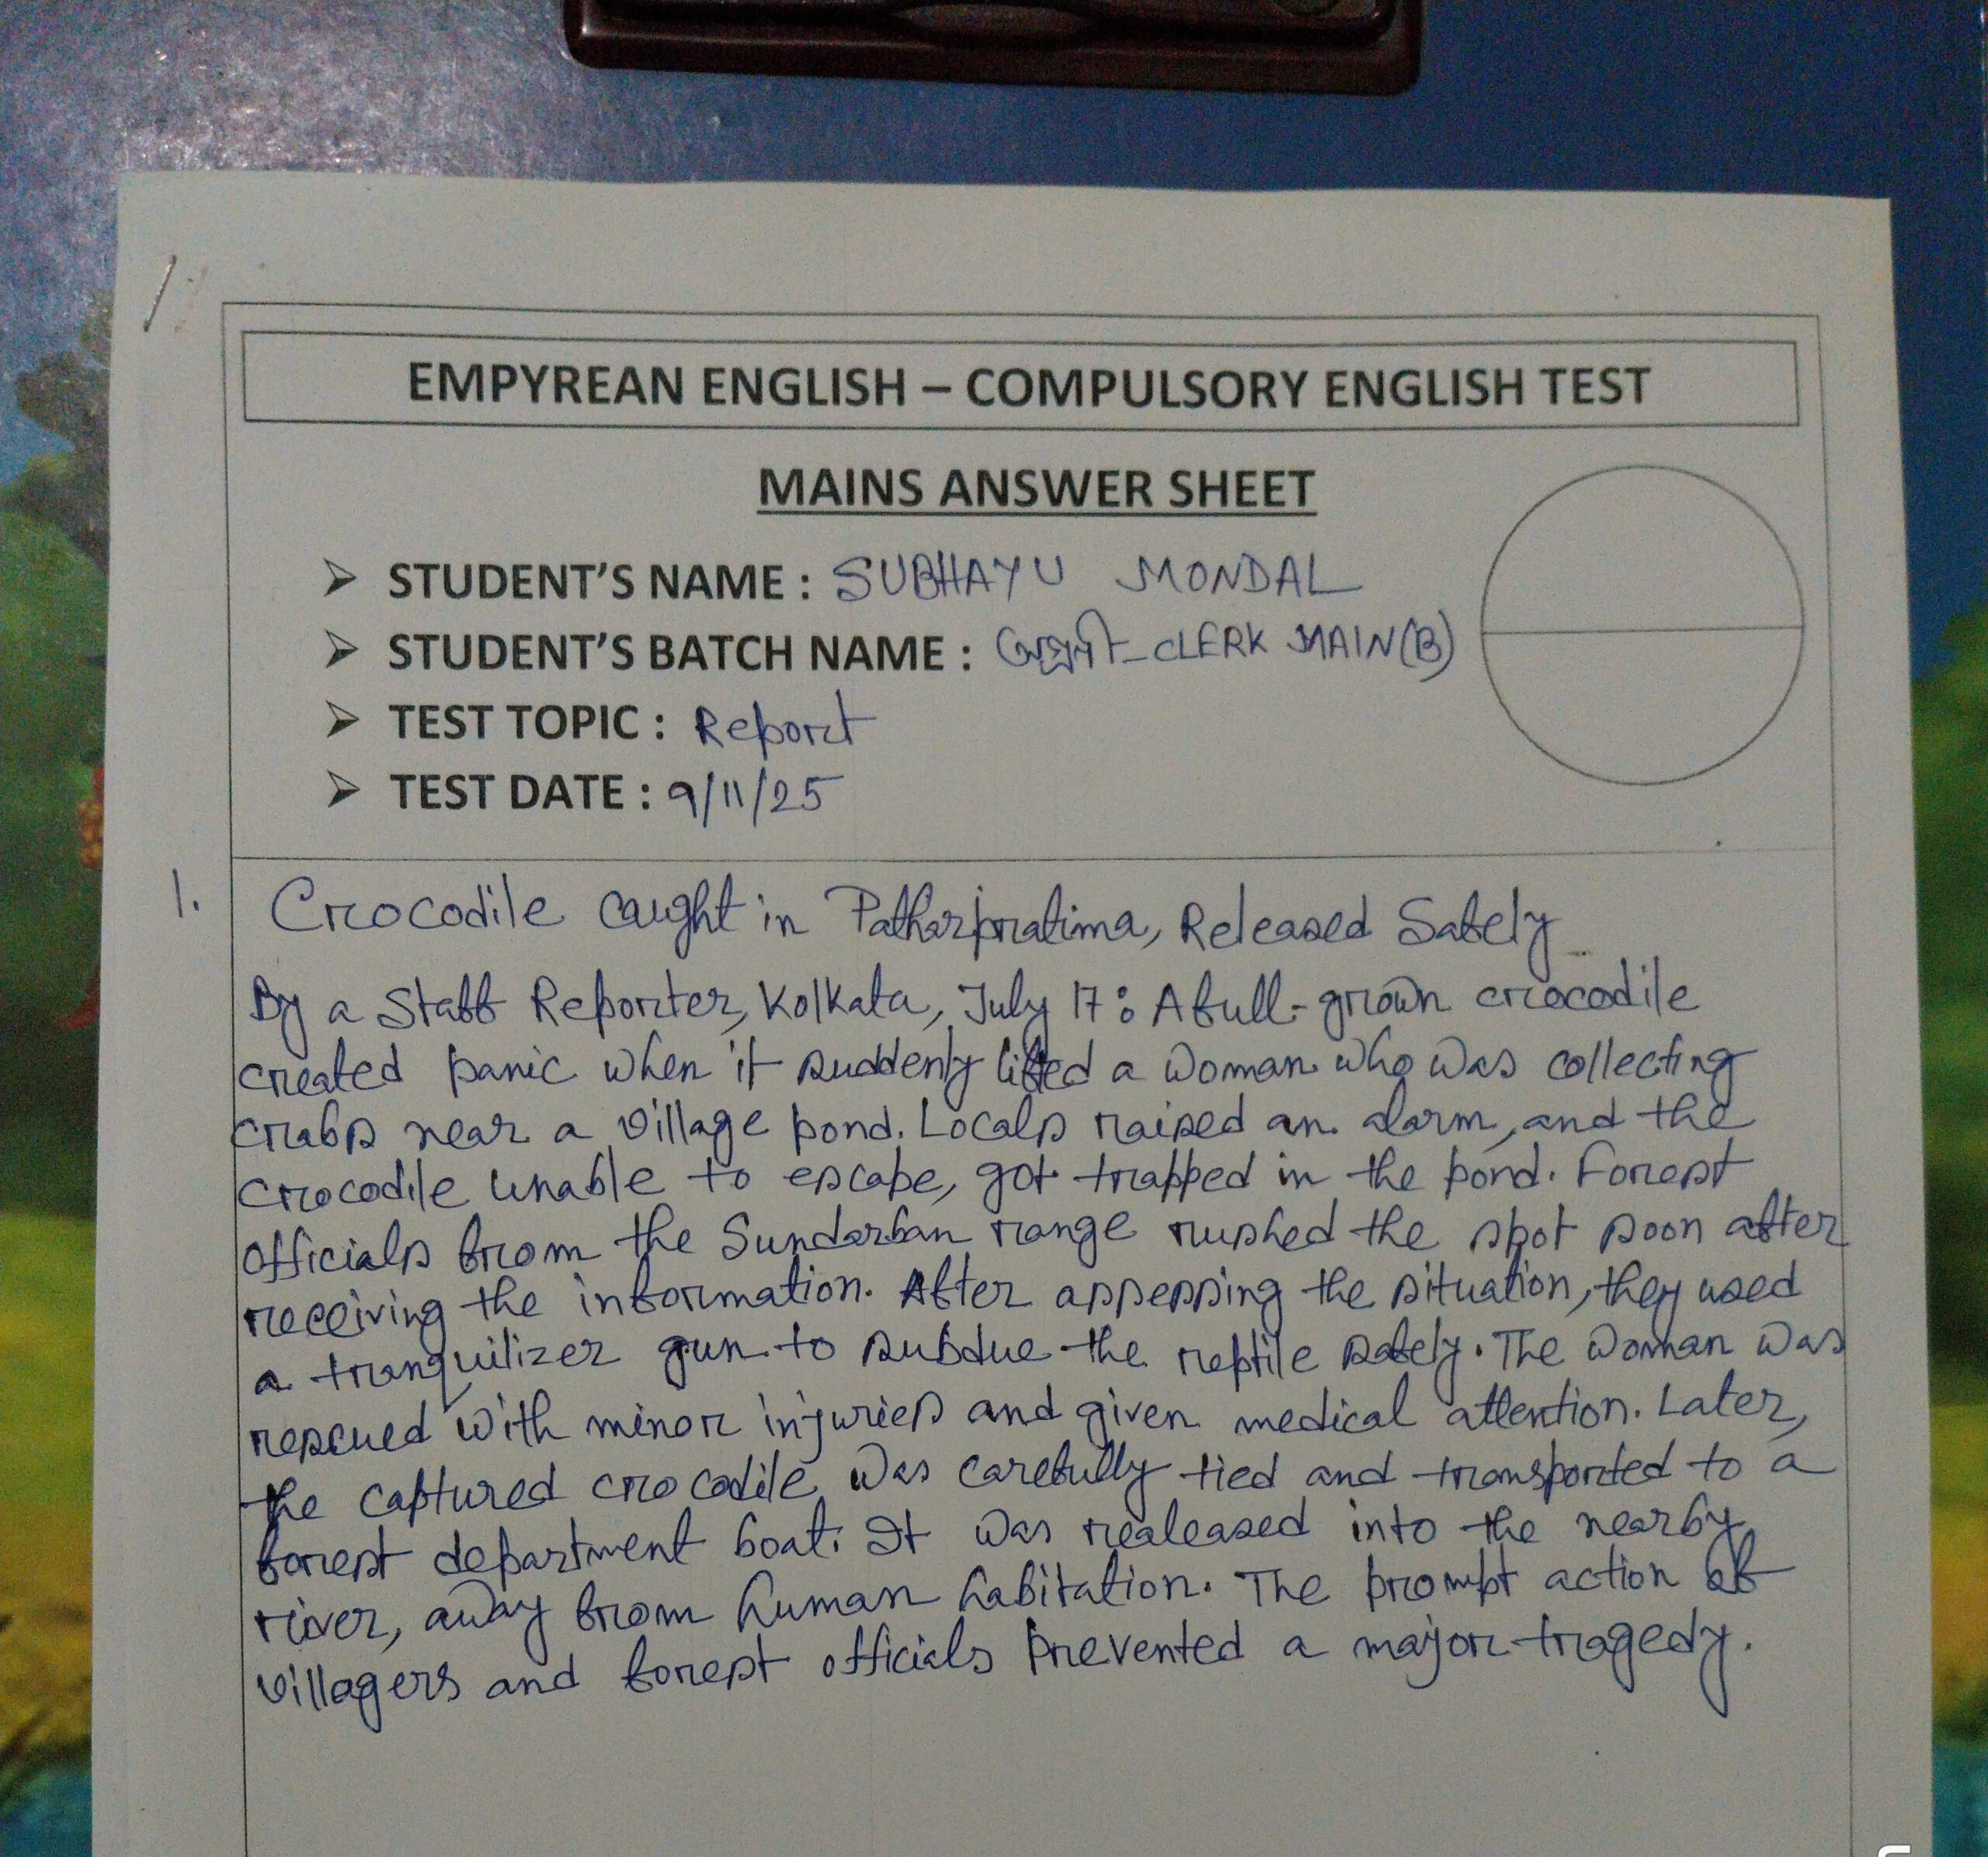 EMPYREAN ENGLISH – COMPULSORY ENGLISH TEST
MAINS ANSWER SHEET
➢ STUDENT'S NAME : SUBHAYU MONDAL
➢ STUDENT'S BATCH NAME : CLERK MAIN(B)
➢ TEST TOPIC : Report
➢ TEST DATE : 9/11/25
1. Crocodile caught in Patharpratima, Released Safely
By a Staff Reporter, Kolkata, July 17: A full-grown crocodile
created panic when it suddenly lifted a woman who was collecting
crabs near a village pond. Locals raised an alarm, and the
crocodile unable to escape, got trapped in the pond. Forest
officials from the Sundarban range rushed the spot soon after
receiving the information. After assessing the situation, they used
a tranquilizer gun to subdue the reptile safely. The woman was
rescued with minor injuries and given medical attention. Later,
the captured crocodile was carefully tied and transported to a
forest department boat. It was realeased into the nearby
river, away from human habitation. The prompt action of
villagers and forest officials prevented a major tragedy.